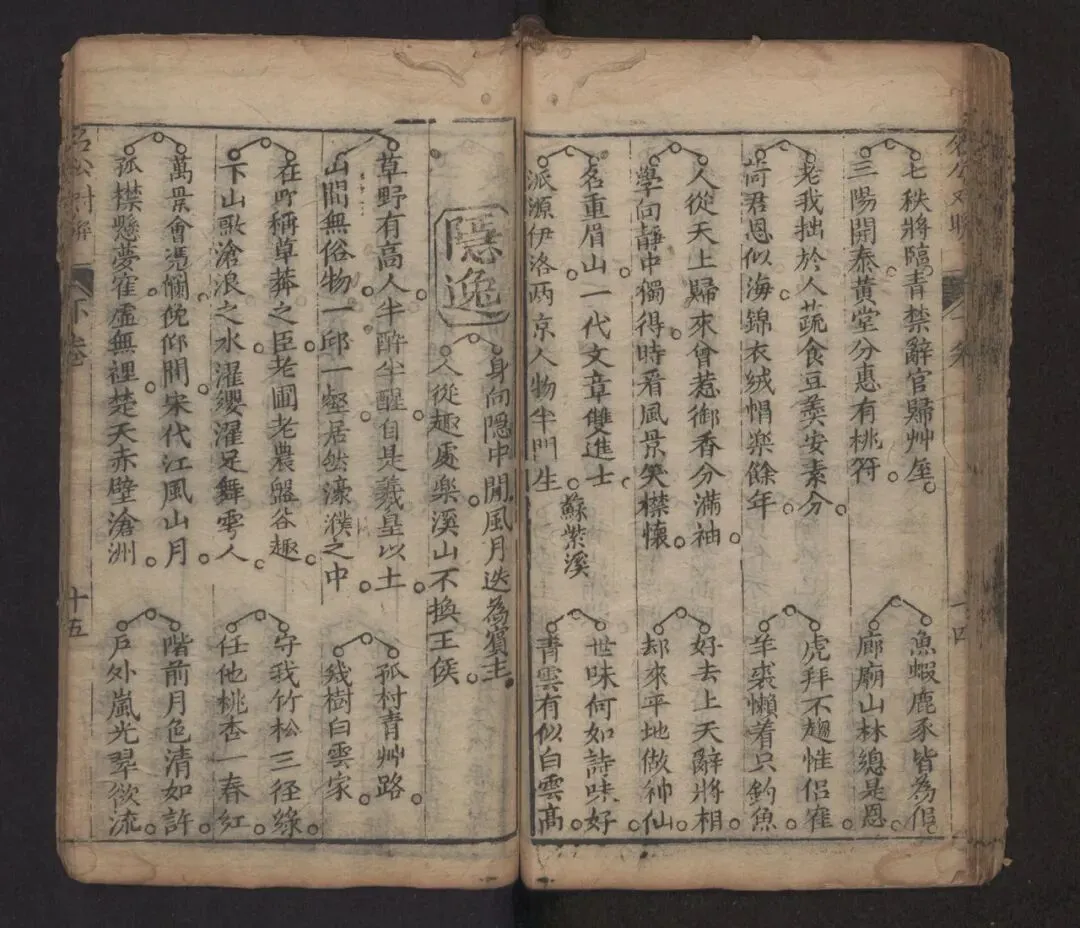 七秩將臨青禁辭官歸艸屋
三陽開泰黃堂分惠有桃符
漁蝦鹿豕皆為侶
廊廟山林總是恩
老我拙於人蔬食豆羹安素分
荷君恩似海錦衣絨帽樂餘年
虎拜不趨惟侶隺
羊裘懶着只釣魚
人從天上歸來會惹御香分滿袖
學向靜中獨得時看風景笑襟懷
好去上天辭將相
却來平地做神仙
名重眉山一代文章雙進士
派源伊洛两京人物半門生
蘇紫溪
世味何如詩味好
青雲有似白雲高
隱逸
身向隱中閒風月迭為賓主
人從趣處楽溪山不換王侯
草野有高人半醉半醒自是羲皇以上
山間無俗物一邱一壑居然濠濮之中
孤村青艸路
幾樹白雲家
在野稱草莽之臣老圃老農盤谷趣
下山歌滄浪之水濯纓濯足舞雩人
守我竹松三径綠
任他桃杏一春紅
萬景會憑欄俛仰閒宋代江風山月
孤襟懸夢寉虛無裡楚天赤壁滄洲
階前月色清如許
戶外嵐光翠欲流
下卷
十五